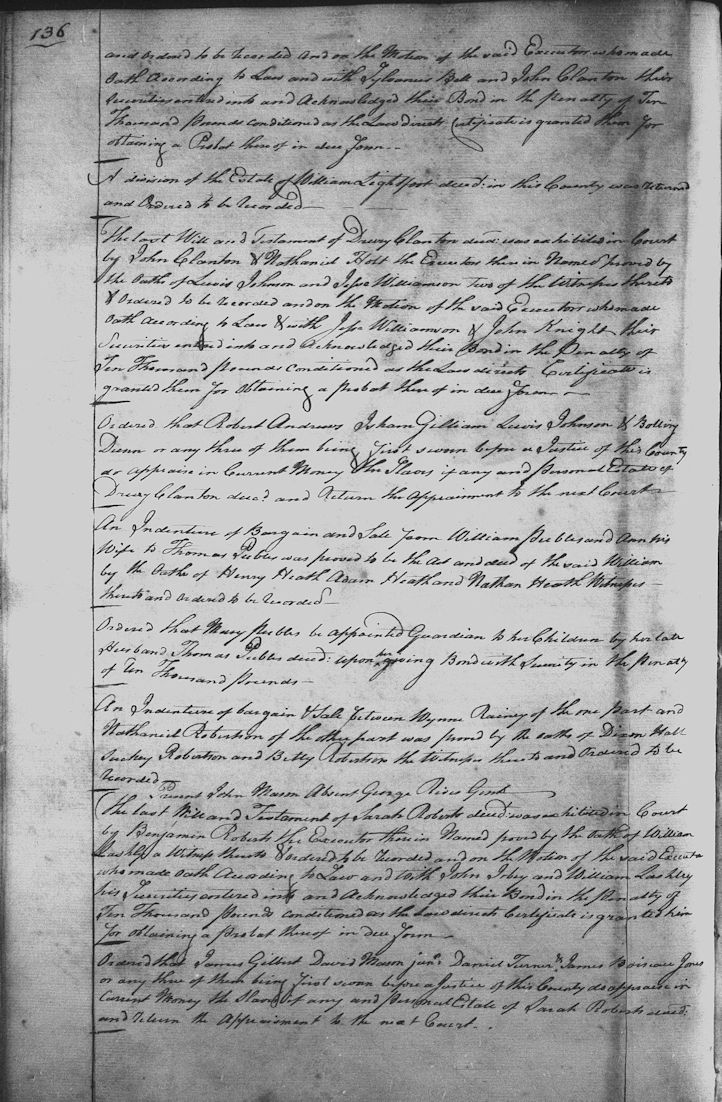 136
and Ordered to be Recorded And on the Motion of the said Executors who made
Oath According to Law and with Sylvanus Bell and John Clanton their
Securities entered into and Acknowledged their Bond in the Penalty of Ten
Thousand Pounds conditioned as the Law directs Certificate is granted them for
obtaining a Probat thereof in due form
A division of the Estate of William Lightfoot decd: in this County was returned
and Ordered to be Recorded
The last Will and Testament of Drury Clanton decd: was exhibited in Court
by John Clanton & Nathaniel Holt the Executors therein Named proved by
the Oaths of Lewis Johnson and Jesse Williamson two of the Witnesses thereto
& Ordered to be recorded and on the Motion of the said Executors who made
Oath According to Law & with Jesse Williamson & John Knight their
Securities entered into and Acknowledged their Bond in the Penalty of
Ten Thousand Pounds conditioned as the Law directs Certificate is
granted them for obtaining a probat thereof in due form
Ordered that Robert Andrews Isham Gilliam Lewis Johnson & Bolling
Dunn or any three of them being first sworn before a Justice of this County
do appraise in Current Money the Slaves if any and personal Estate of
Drury Clanton decd. and Return the Appraisment to the next Court
An Indenture of Bargain and Sale from William Peebles and Ann his
Wife to Thomas Peebles was proved to be the Act and deed of the said William
by the Oaths of Henry Heath Adam Heath and Nathan Heath Witnesses
thereto and ordered to be recorded
Ordered that Mary Peebles be appointed Guardian to her Children by her late
Husband Thomas Peebles decd: upon her giving Bond with Security in the Penalty
of Ten Thousand pounds
An Indenture of bargain & Sale between Wynne Rainey of the one part and
Nathaniel Robertson of the other part was proved by the oaths of Dixon Hall
Suckey Robertson and Betty Robertson the Witnesses thereto and Ordered to be
recorded
Present John Mason Absent George Rives Gent
The last Will and Testament of Sarah Roberts decd: was exhibited in Court
by Benjamin Roberts the Executor therein Named proved by the Oath of William
Lashley a Witness thereto & ordered to be recorded and on the Motion of the said Executor
who made Oath According to Law and with John Irby and William Lashley
his Securities entered into and Acknowledged their Bond in the Penalty of
Ten Thousand Pounds conditioned as the Law directs Certificate is granted him
for obtaining a probat thereof in due form
Ordered that James Gilbert David Mason junr. Daniel Turner & James Boiseau Jones
or any three of them being first sworn before a Justice of this County do appraise in
Current Money the Slaves if any and personal Estate of Sarah Roberts decd:
and return the Appraisment to the next Court